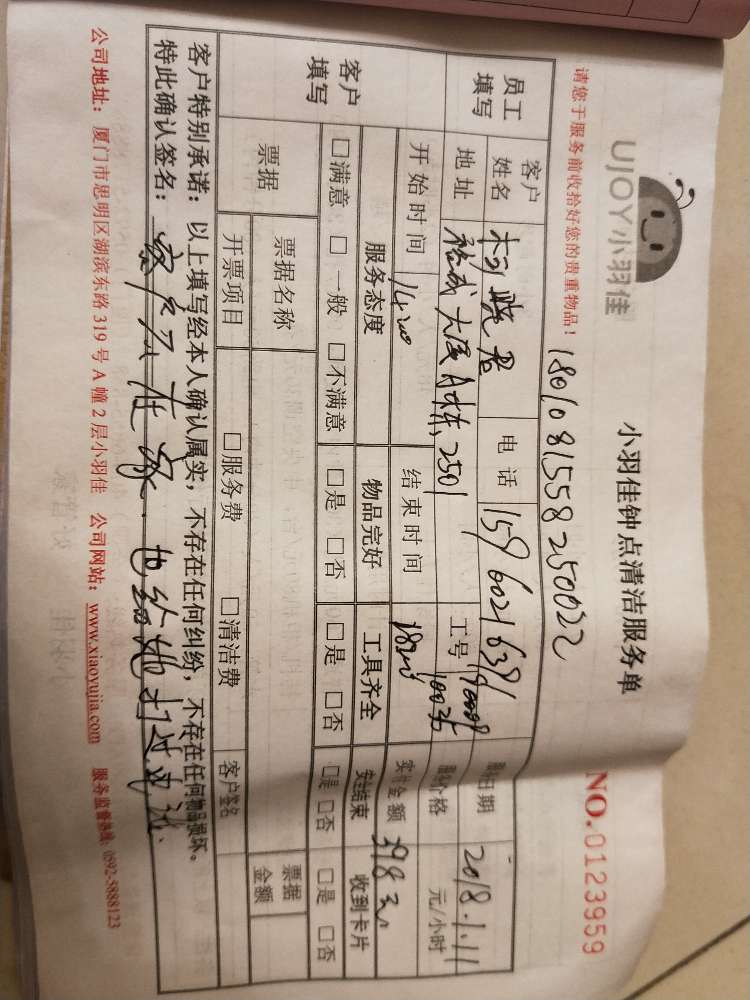 UJOY小羽佳
小羽佳钟点清洁服务单
NO.0123959
请您于服务前收拾好您的贵重物品！
180108155825002​2
员工填写 客户姓名 柯晓君 电话 15960216381 服务日期 2018.1.11
地址 裕成大厦A栋,2501 工号 服务价格 元/小时
开始时间 14:00 结束时间 18:00 实付金额 398元
客户填写 服务态度 物品完好 工具齐全 安全结束 收到卡片
□满意 □一般 □不满意 □是 □否 □是 □否 □是 □否 □是 □否
票据 票据名称 票据金额
开票项目 □服务费 □清洁费 客户签名
客户特别承诺：以上填写经本人确认属实，不存在任何纠纷，不存在任何物品损坏。
特此确认签名：客户不在家.也给她打过电话.
公司地址：厦门市思明区湖滨东路319号A幢2层小羽佳 公司网站：www.xiaoyujia.com 服务监督热线：0592-5888123